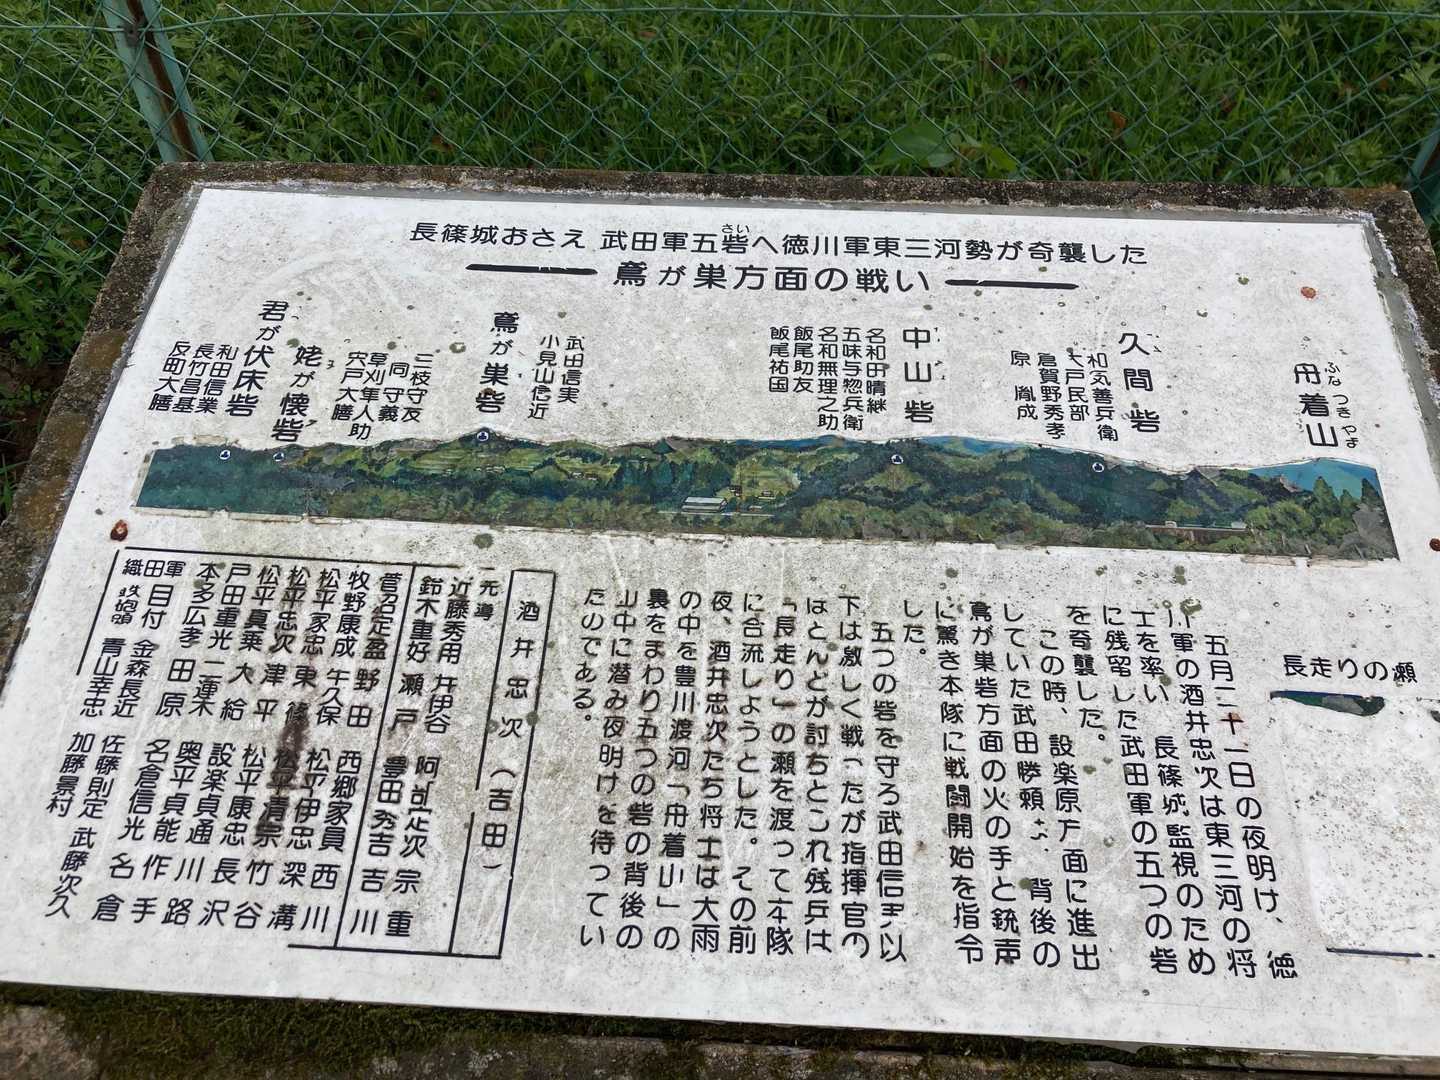 長篠城おさえ 武田軍五砦へ徳川軍東三河勢が奇襲した
さい
鳶が巣方面の戦い
舟着山
ふなつきやま
久間砦
和気善兵衛
大戸民部
倉賀野秀孝
原 胤成
中山砦
名和田晴継
五味与惣兵衛
名和無理之助
飯尾助友
飯尾祐国
武田信実
小見山信近
鳶が巣砦
三枝守友
同 守義
草刈隼人助
宍戸大膳
姥が懐砦
君が伏床砦
和田信業
長竹昌基
反町大膳
長走りの瀬
五月二十一日の夜明け、徳
川軍の酒井忠次は東三河の将
士を率い、長篠城監視のため
に残留した武田軍の五つの砦
を奇襲した。
この時、設楽原方面に進出
していた武田勝頼は、背後の
鳶が巣砦方面の火の手と銃声
に驚き本隊に戦闘開始を指令
した。
五つの砦を守ろ武田信実以
下は激しく戦ったが指揮官の
ほとんどが討ちとられ残兵は
「長走り」の瀬を渡って本隊
に合流しようとした。その前
夜、酒井忠次たち将士は大雨
の中を豊川渡河「舟着山」の
裏をまわり五つの砦の背後の
山中に潜み夜明けを待ってい
たのである。
酒井忠次(吉田)
先導
近藤秀用 井伊谷 阿部定次 宗重
鈴木重好 瀬戸 豊田秀吉 吉川
菅沼定盈 野田 西郷家員 西川
牧野康成 牛久保 松平伊忠 深溝
松平家忠 東篠 松平清宗 竹谷
松平忠次 津平 松平康忠 長沢
松平真乗 大給 設楽貞通 川路
戸田重光 二連木 奥平貞能 作手
本多広孝 田原 名倉信光 名倉
織田軍 目付 金森長近 佐藤則定 武藤次久
鉄砲頭 青山幸忠 加藤景村